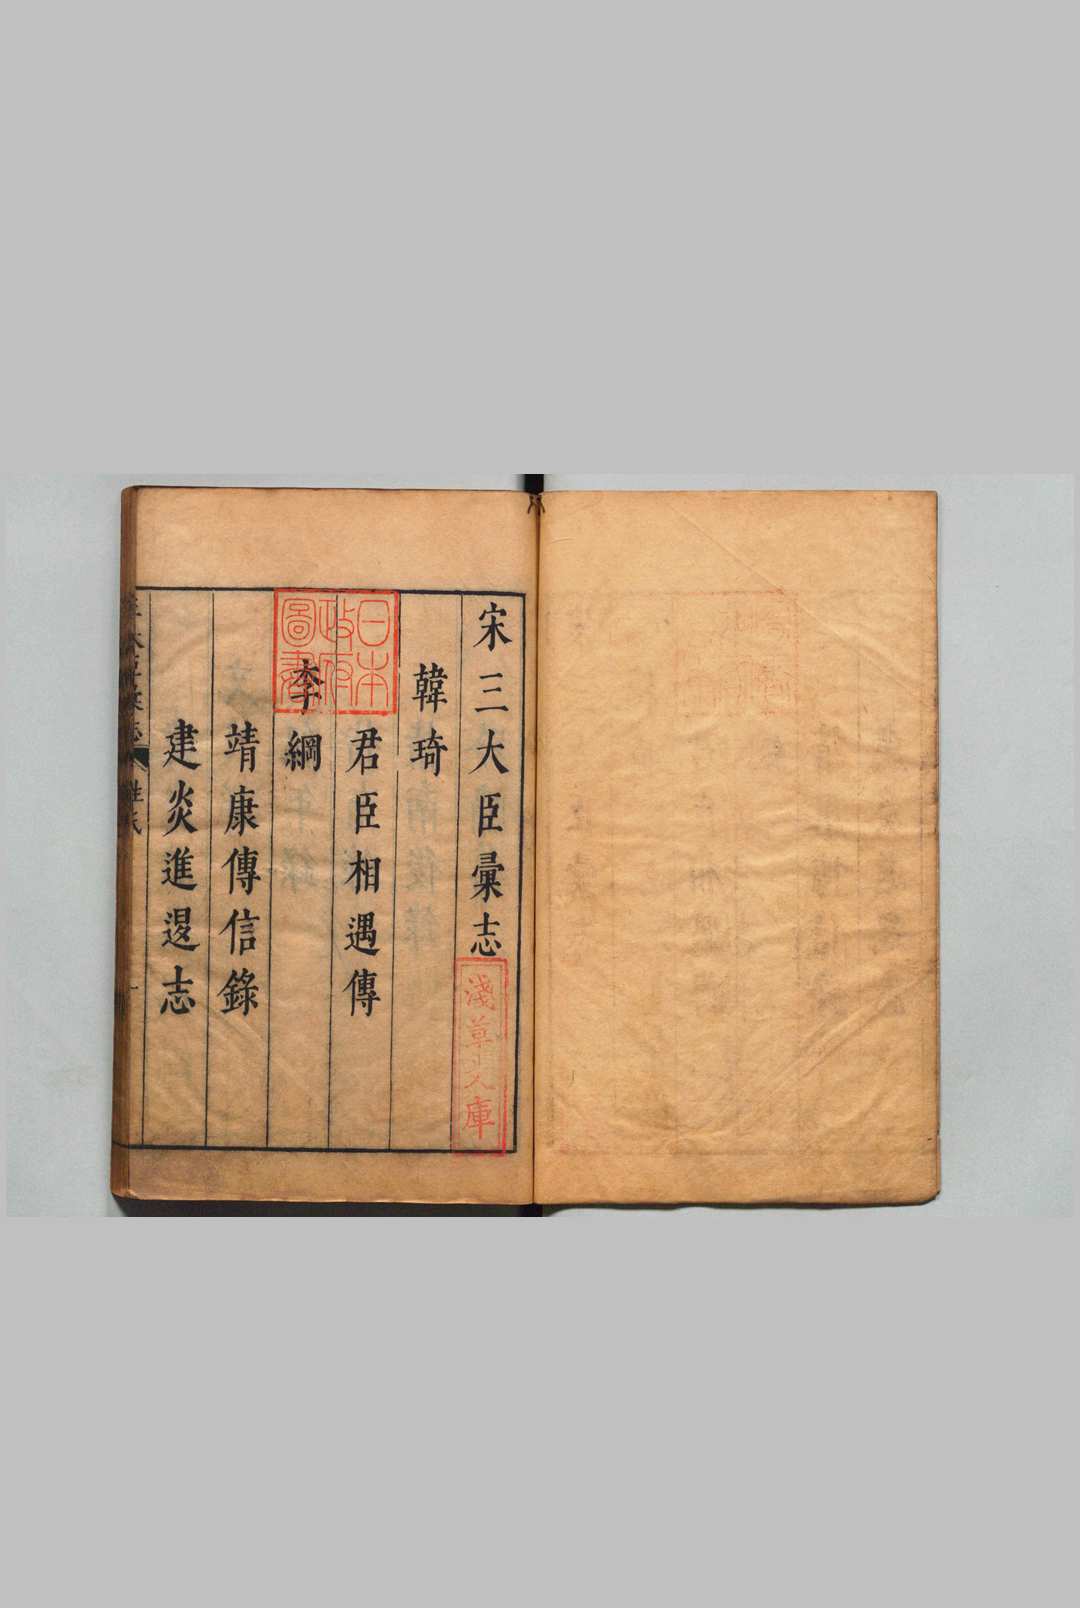 宋三大臣彙志
韓琦
君臣相遇傳
李綱
靖康傳信錄
建炎進退志
姓氏
日本
政府
圖書
淺草文庫